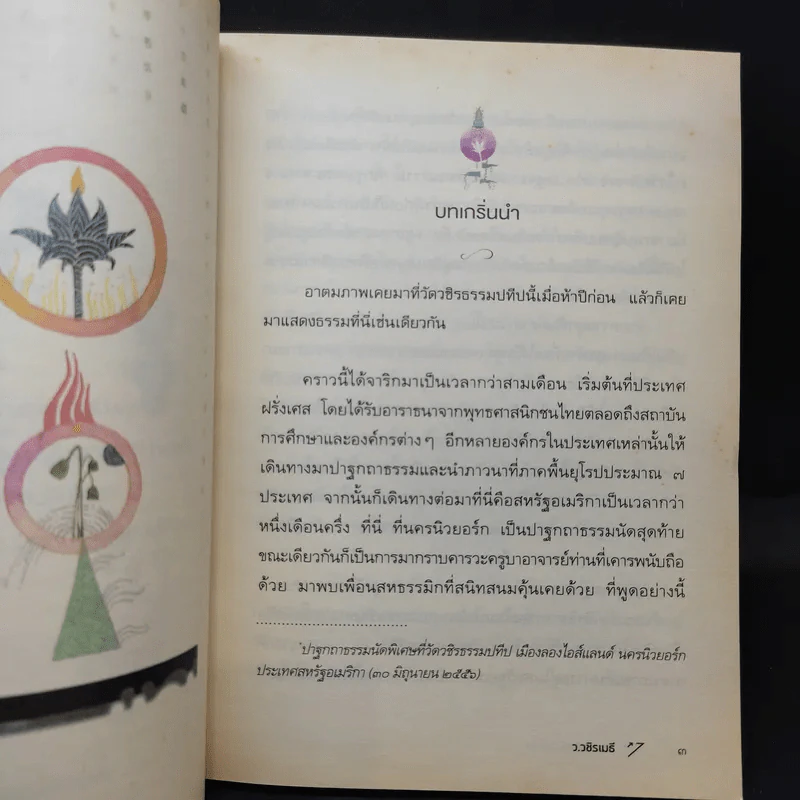 บทเกริ่นนำ
อาตมภาพเคยมาที่วัดวชิรธรรมปทีปนี้เมื่อห้าปีก่อน แล้วก็เคย
มาแสดงธรรมที่นี่เช่นเดียวกัน
คราวนี้ได้จาริกมาเป็นเวลากว่าสามเดือน เริ่มต้นที่ประเทศ
ฝรั่งเศส โดยได้รับอาราธนาจากพุทธศาสนิกชนไทยตลอดถึงสถาบัน
การศึกษาและองค์กรต่างๆ อีกหลายองค์กรในประเทศเหล่านั้นให้
เดินทางมาปาฐกถาธรรมและนำภาวนาที่ภาคพื้นยุโรปประมาณ ๗
ประเทศ จากนั้นก็เดินทางต่อมาที่นี่คือสหรัฐอเมริกาเป็นเวลากว่า
หนึ่งเดือนครึ่ง ที่นี่ ที่นครนิวยอร์ก เป็นปาฐกถาธรรมนัดสุดท้าย
ขณะเดียวกันก็เป็นการมากราบคารวะครูบาอาจารย์ท่านที่เคารพนับถือ
ด้วย มาพบเพื่อนสหธรรมิกที่สนิทสนมคุ้นเคยด้วย ที่พูดอย่างนี้
*ปาฐกถาธรรมนัดพิเศษที่วัดวชิรธรรมปทีป เมืองลองไอส์แลนด์ นครนิวยอร์ก
ประเทศสหรัฐอเมริกา (๓๐ มิถุนายน ๒๕๕๖)
ว.วชิรเมธี ๓